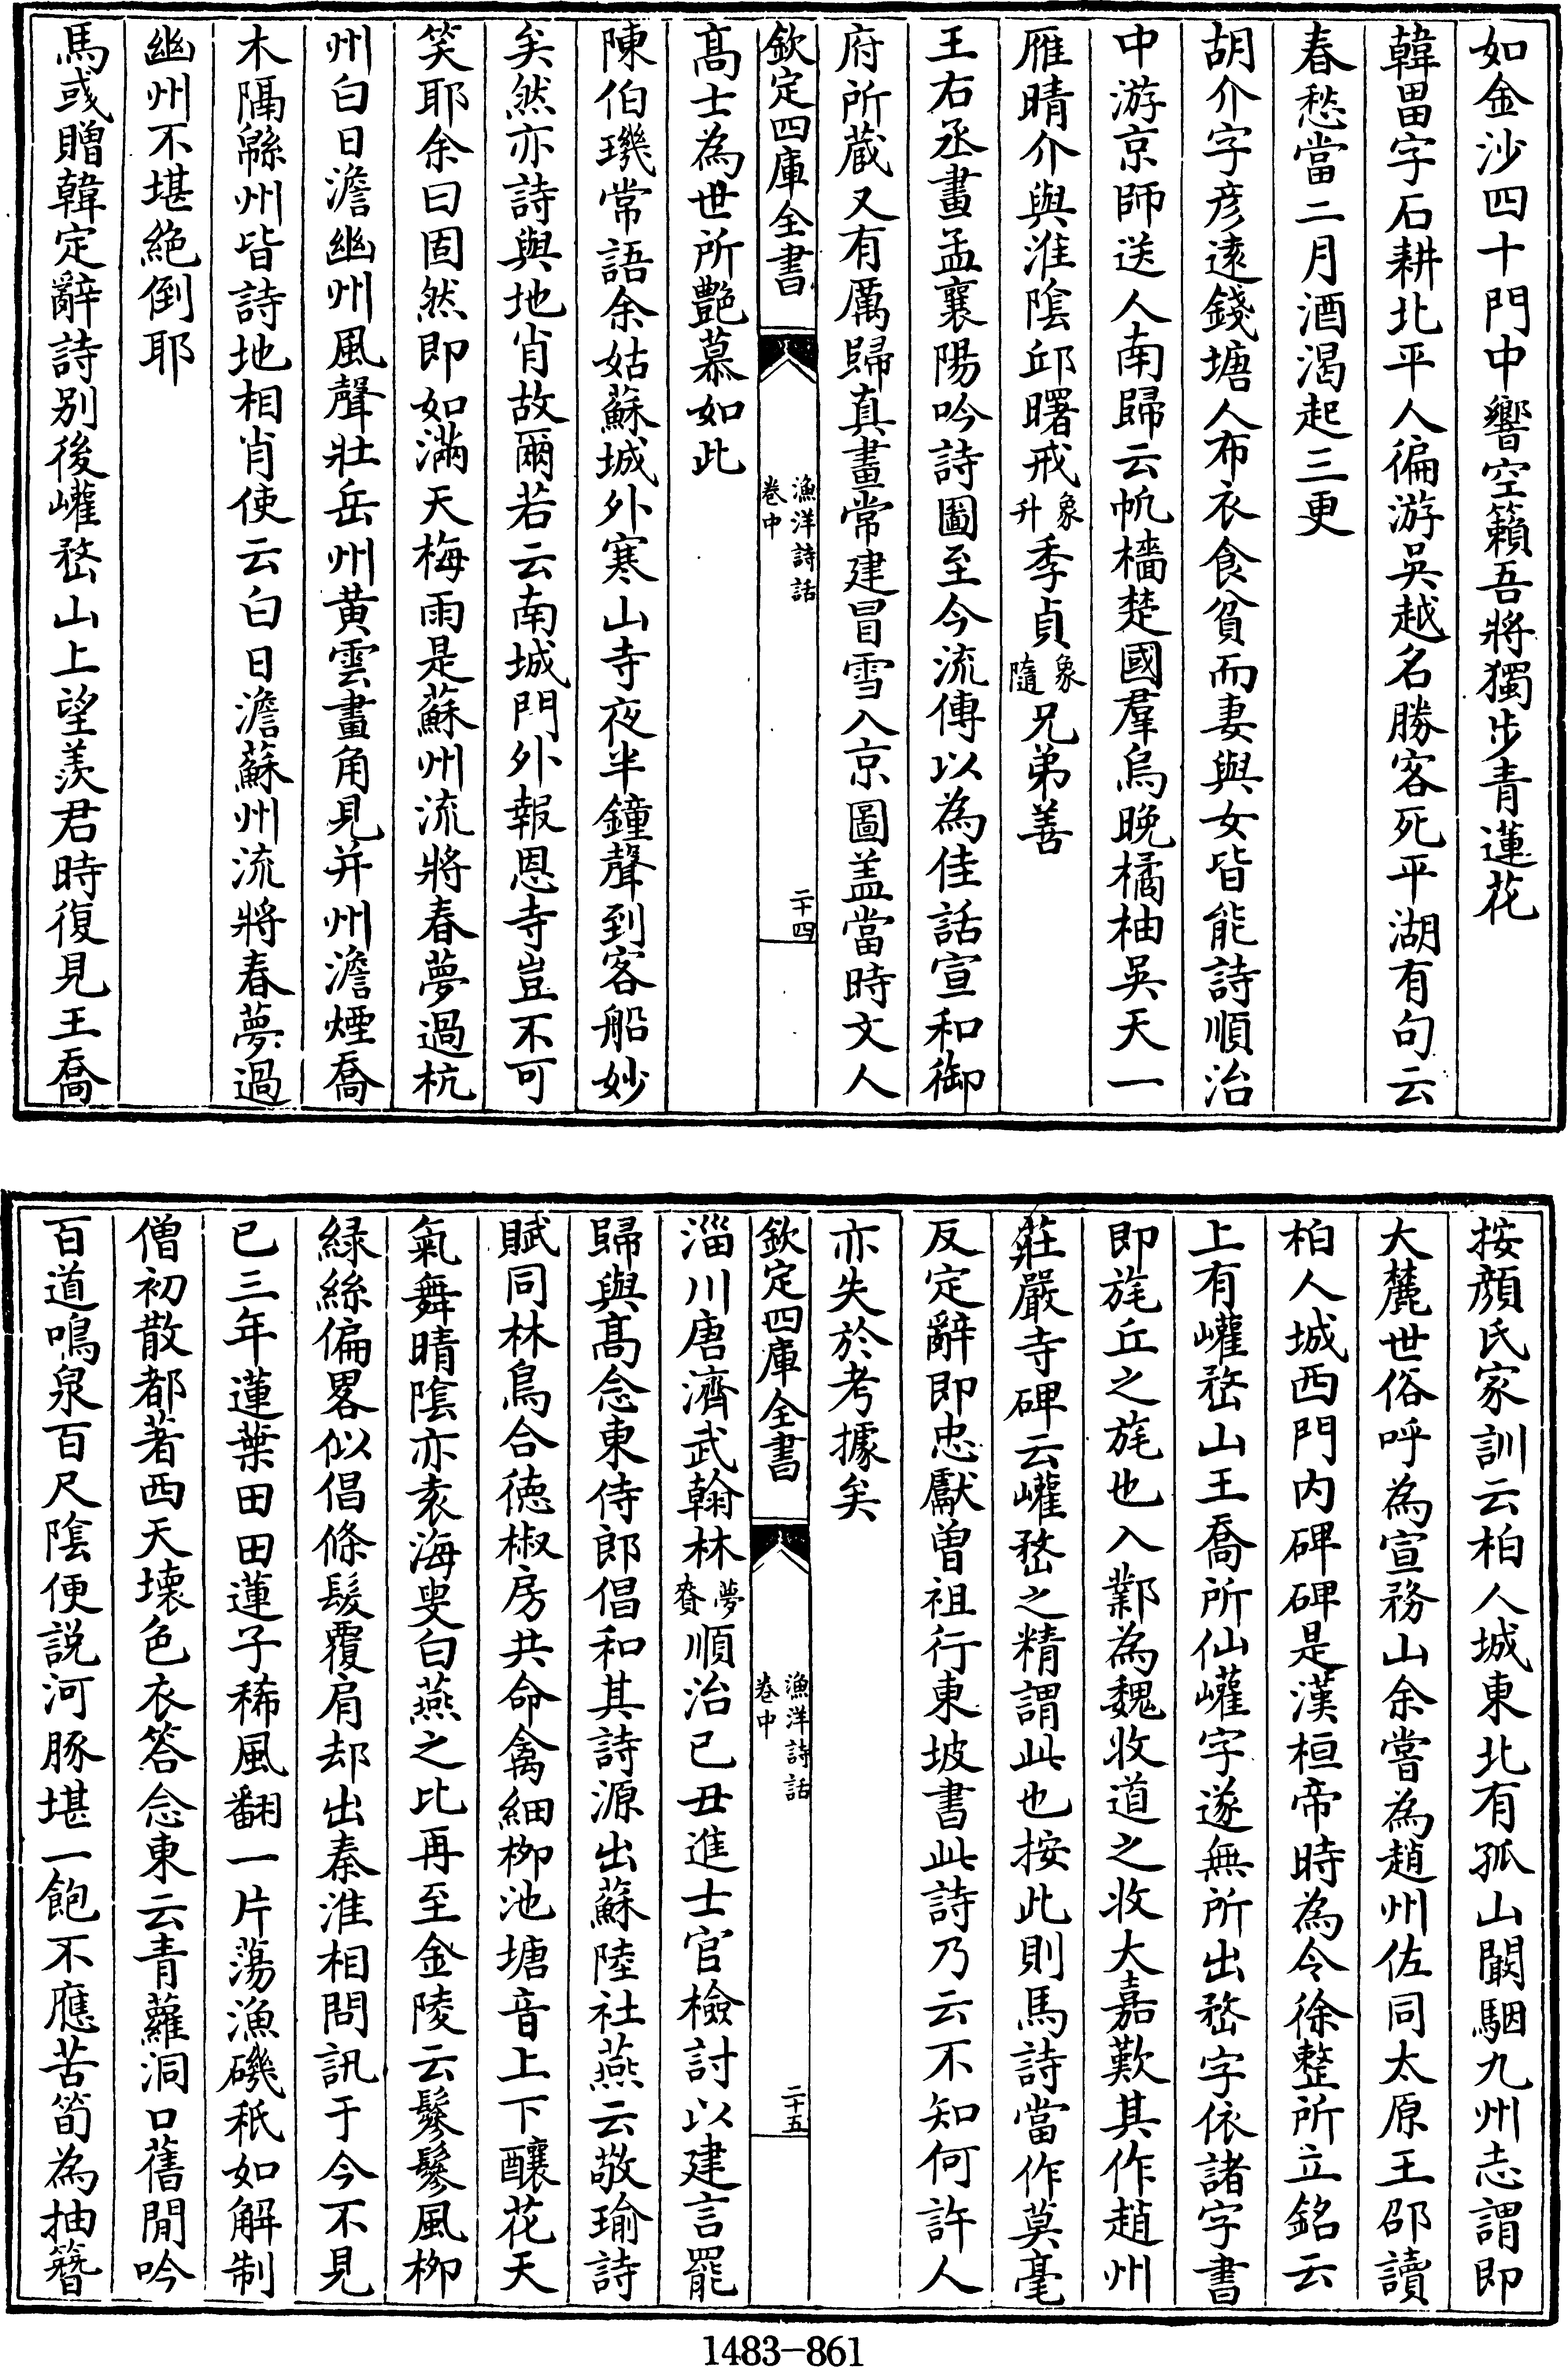 如金沙四十門中響空籟吾將獨步青蓮花
韓畕字石耕北平人徧游吳越名勝客死平湖有句云
春愁當二月酒渴起三更
胡介字彥逺錢塘人布衣食貧而妻與女皆能詩順治
中游京師送人南歸云帆檣楚國羣烏晚橘柚吳天一
雁晴介與淮隂邱曙戒象升季貞象隨兄弟善
王右丞畫孟襄陽吟詩圖至今流傳以為佳話宣和御
府所蔵又有厲歸真畫常建冒雪入京圖盖當時文人
欽定四庫全書
漁洋詩話
卷中
二十四
髙士為世所艶慕如此
陳伯璣常語余姑蘇城外寒山寺夜半鐘聲到客船妙
矣然亦詩與地肖故爾若云南城門外報恩寺豈不可
笑耶余曰固然即如滿天梅雨是蘇州流將春夢過杭
州白日澹幽州風聲壯岳州黄雲畫角見并州澹煙喬
木隔緜州皆詩地相肖使云白日澹蘇州流將春夢過
幽州不堪絶倒耶
馬彧贈韓定辭詩别後巏嵍山上望羨君時復見王喬
按顔氏家訓云柏人城東北有孤山闞駰九州志謂即
大麓世俗呼為宣務山余嘗為趙州佐同太原王邵讀
柏人城西門内碑碑是漢桓帝時為令徐整所立銘云
上有巏嵍山王喬所仙巏字遂無所出嵍字依諸字書
即旄丘之旄也入鄴為魏收道之收大嘉歎其作趙州
莊嚴寺碑云巏嵍之精謂此也按此則馬詩當作莫毫
反定辭即忠獻曾祖行東坡書此詩乃云不知何許人
亦失於考據矣
欽定四庫全書
漁洋詩話
卷中
二十五
淄川唐濟武翰林夢賚順治已丑進士官檢討以建言罷
歸與髙念東侍郎倡和其詩源出蘇陸社燕云敬瑜詩
賦同林鳥合徳椒房共命禽細栁池塘音上下釀花天
氣舞晴隂亦袁海叟白燕之比再至金陵云鬖鬖風栁
緑絲偏畧似倡條髮覆肩却出秦淮相問訊于今不見
已三年蓮葉田田蓮子稀風翻一片蕩漁磯秪如解制
僧初散都著西天壊色衣答念東云青蘿洞口舊閒吟
百道鳴泉百尺隂便説河豚堪一飽不應苦筍為抽簪
1483-861